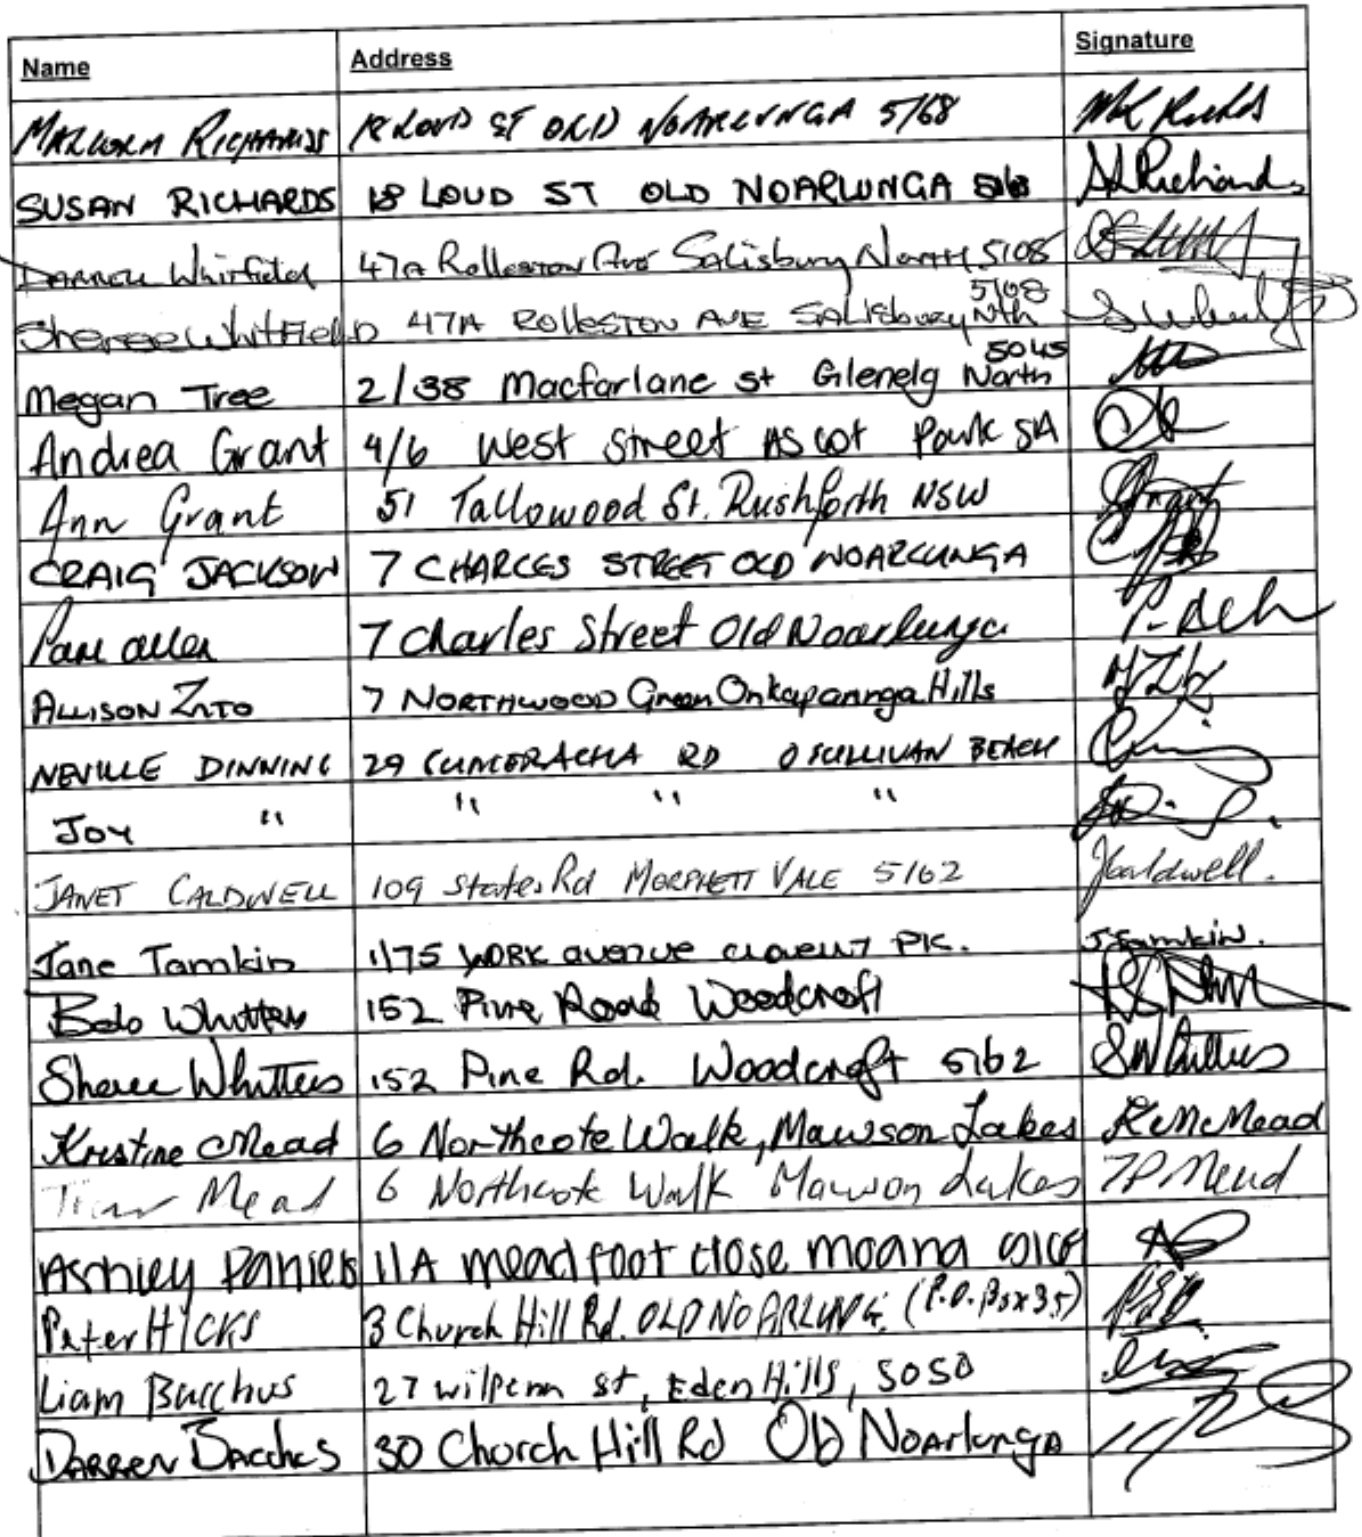 Name Address Signature
MALCOLM RICHARDS 18 LOUD ST OLD NOARLUNGA 5168
SUSAN RICHARDS 18 LOUD ST OLD NOARLUNGA S Richards
Whitfield 47A Rolleston Ave Salisbury North 5108
5108
Sheree Whitfield 47A Rolleston Ave Salisbury Nth
5045
Megan Tree 2/38 Macfarlane St Glenelg North
Andrea Grant 4/6 West Street Ascot Park SA
Ann Grant 51 Tallowood St. Rushforth NSW AGrant
CRAIG JACKSON 7 CHARLES STREET OLD NOARLUNGA
Pam Allen 7 Charles Street Old Noarlunga
ALLISON ZATO 7 NORTHWOOD Green Onkaparinga Hills
NEVILLE DINNING 29 RD O SULLIVAN BEACH
JOY " " " "
JANET CALDWELL 109 States Rd MORPHETT VALE 5162 JCaldwell.
Jane Tamkin 1/75 YORK avenue PK. J Tamkin.
Bob Whitters 152 Pine Road Woodcroft
Sheree Whitters 152 Pine Rd. Woodcroft 5162 SWhitters
Kristine Mead 6 Northcote Walk, Mawson Lakes Mead
Mead 6 Northcote Walk Mawson Lakes TP Mead
Ashley Daniels 11A meadfoot close moana
Peter HICKS 3 Church Hill Rd. OLD NOARLUNG. (P.O. Box 35)
Liam Bacchus 27 wilpena st, Eden Hills, 5050
DARREN Bacchus 30 Church Hill Rd Old Noarlunga